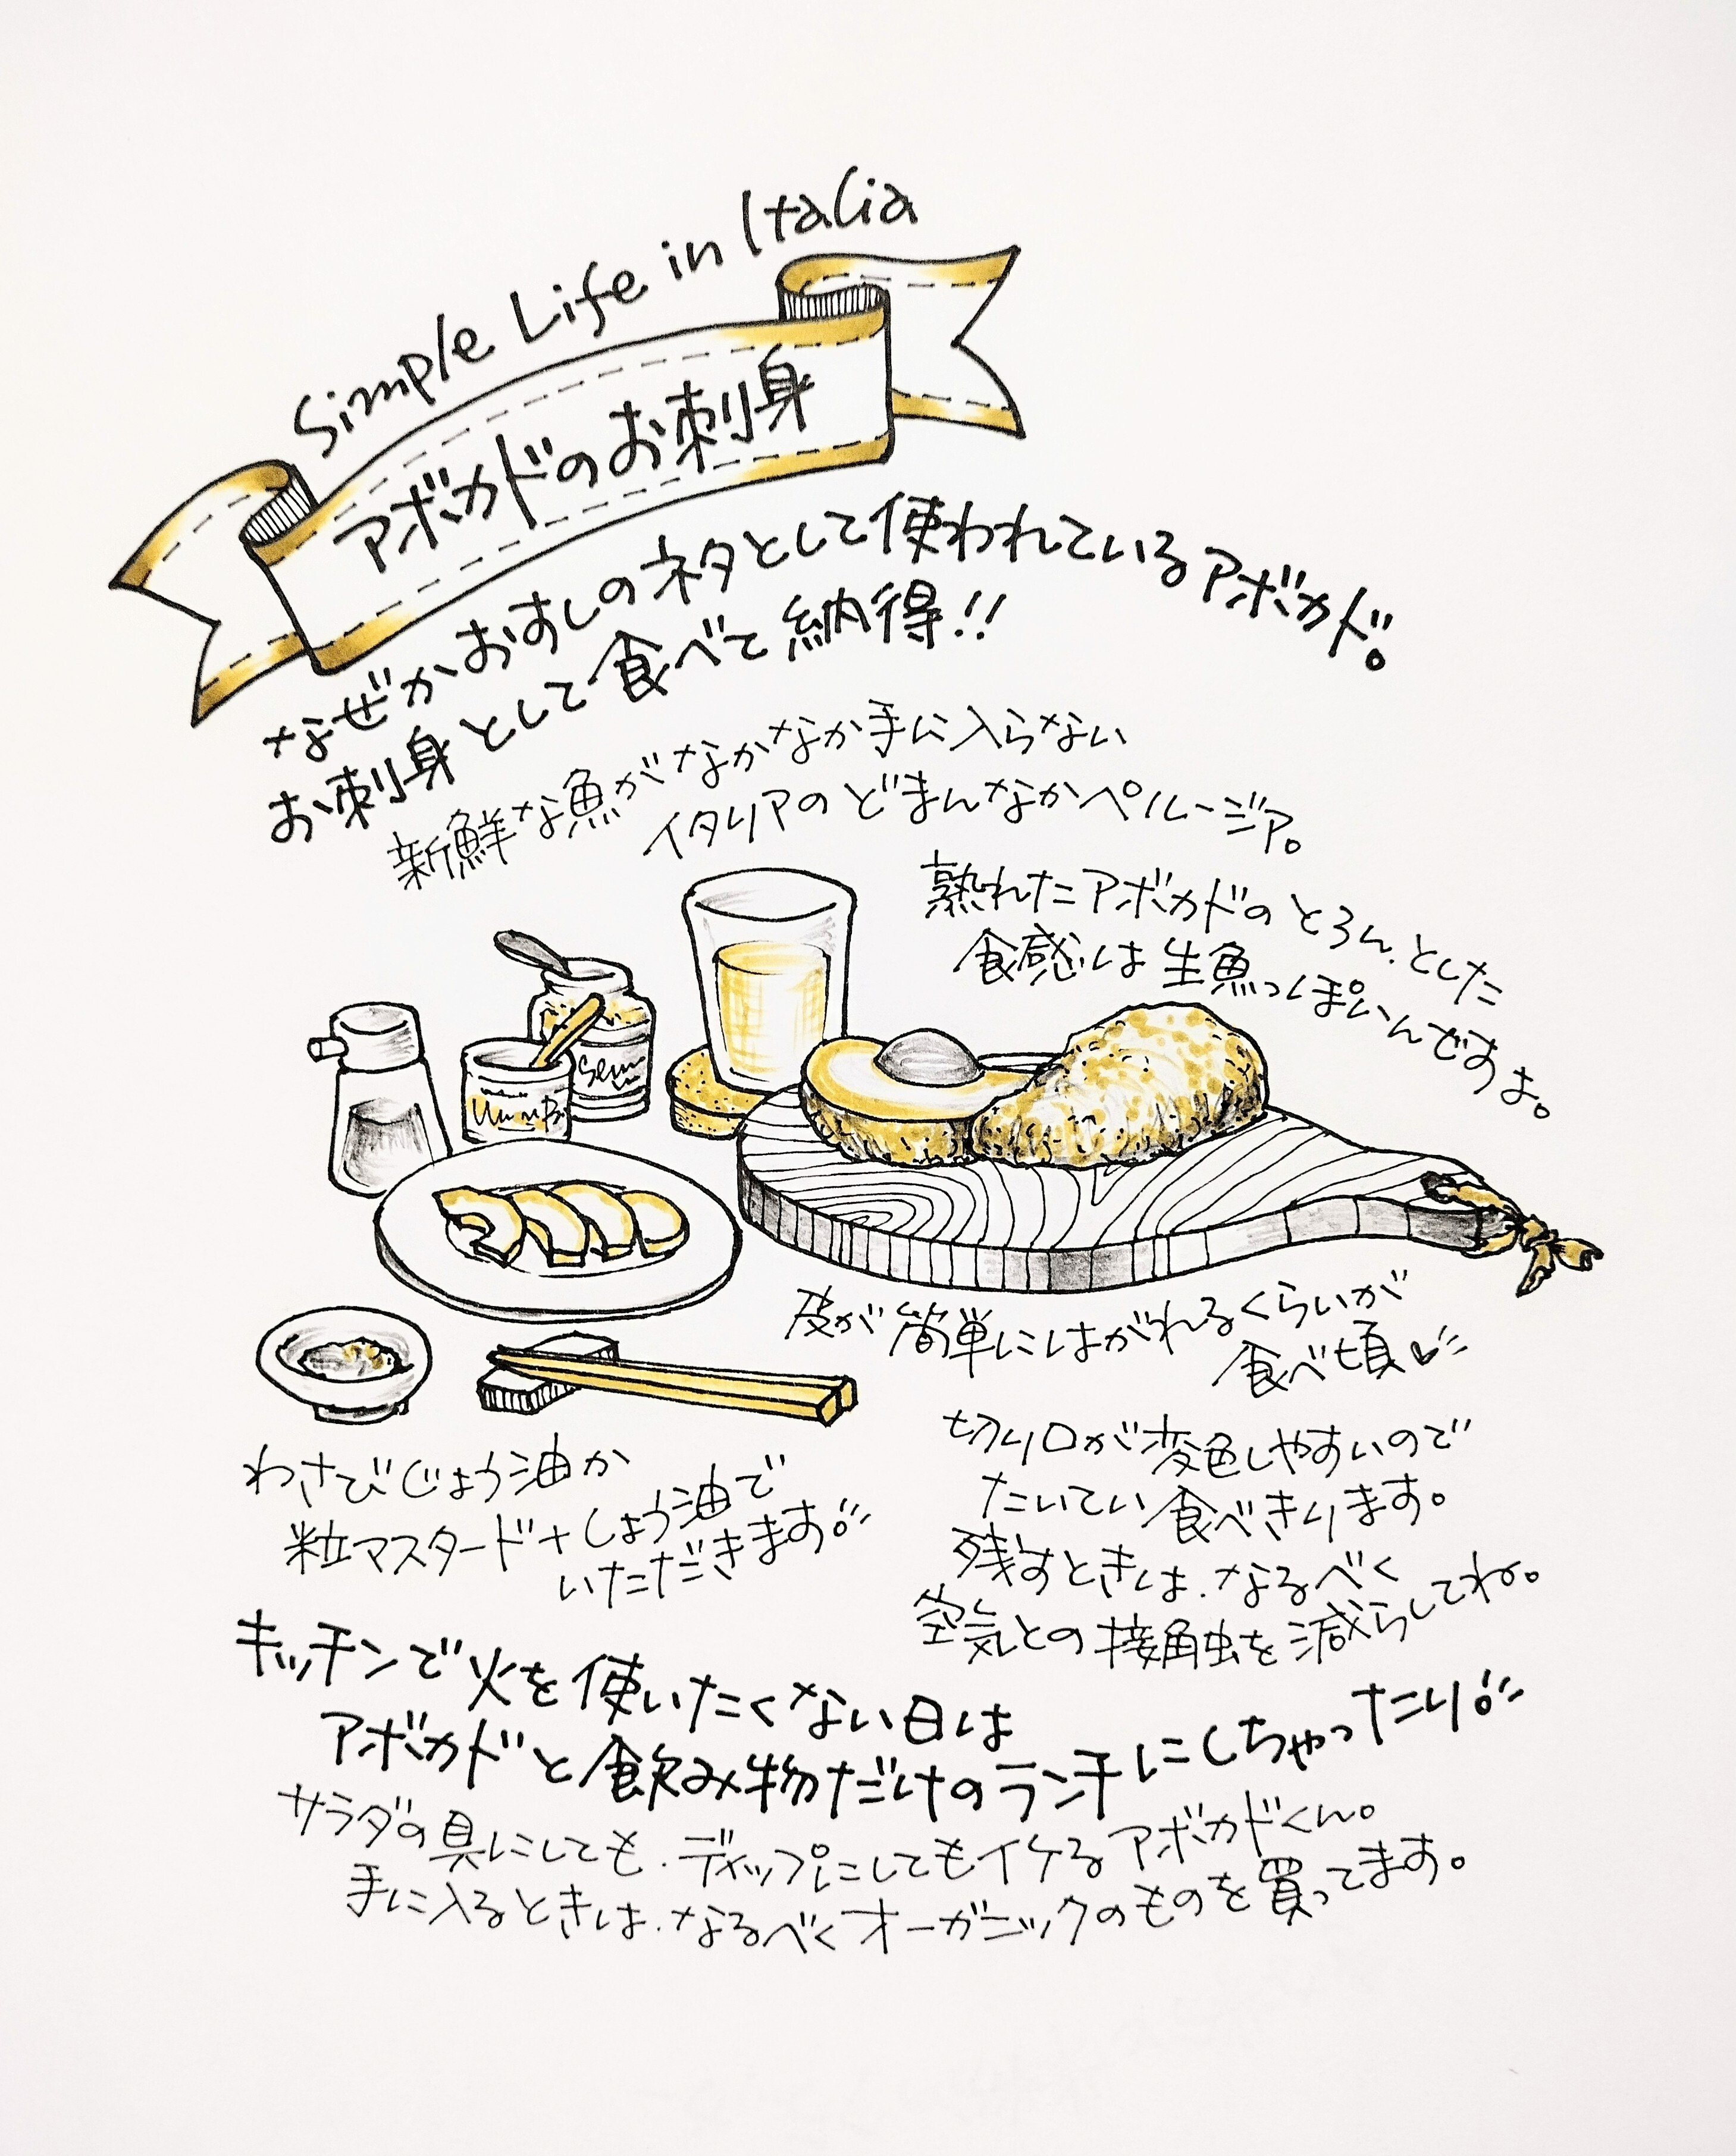 Simple Life in Italia
アボカドのお刺身
なぜかおすしのネタとして使われているアボカド。
お刺身として食べて納得!!
新鮮な魚がなかなか手に入らない
イタリアのどまんなかペルージア。
熟れたアボカドのとろん、とした
食感は生魚っぽいんですよ。
皮が簡単にはがれるくらいが
食べ頃♥
わさびじょう油か
粒マスタード+しょう油で
いただきます。
切り口が変色しやすいので
たいてい食べきります。
残すときは、なるべく
空気との接触を減らしてね。
キッチンで火を使いたくない日は
アボカドと飲み物だけのランチにしちゃったり。
サラダの具にしても、ディップにしてもイケるアボカドくん。
手に入るときは、なるべくオーガニックのものを買ってます。